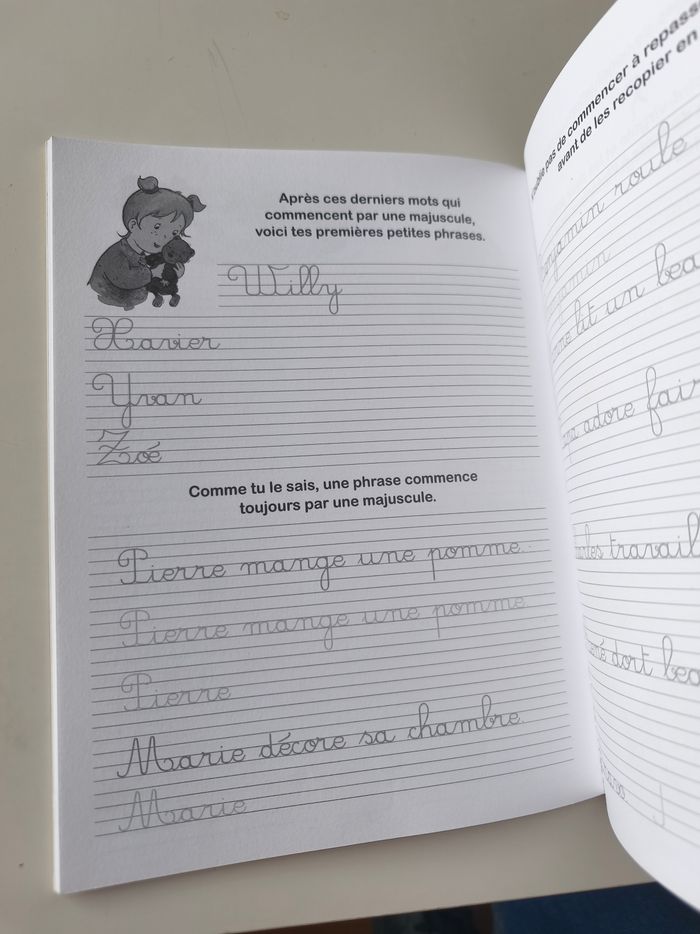 Après ces derniers mots qui
commencent par une majuscule,
voici tes premières petites phrases.
Willy
Xavier
Yvan
Zoé
Comme tu le sais, une phrase commence
toujours par une majuscule.
Pierre mange une pomme.
Pierre mange une pomme.
Pierre
Marie décore sa chambre.
Marie
pas de commencer à
avant de les recopier en
roule
lit un
adore
dort